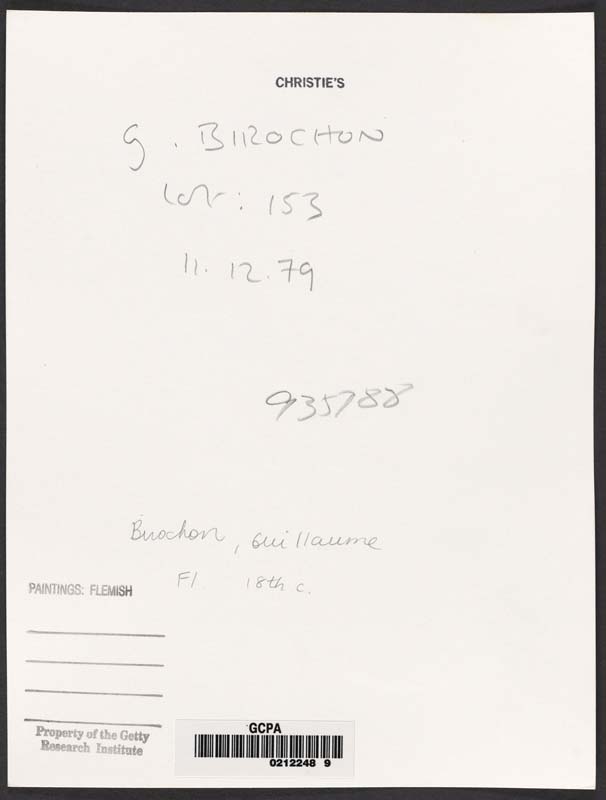 CHRISTIE'S
G. BIROCHON
Lot: 153
11. 12. 79
935788
Birochon, Guillaume
Fl. 18th c.
PAINTINGS: FLEMISH
Property of the Getty
Research Institute
GCPA
0212248 9